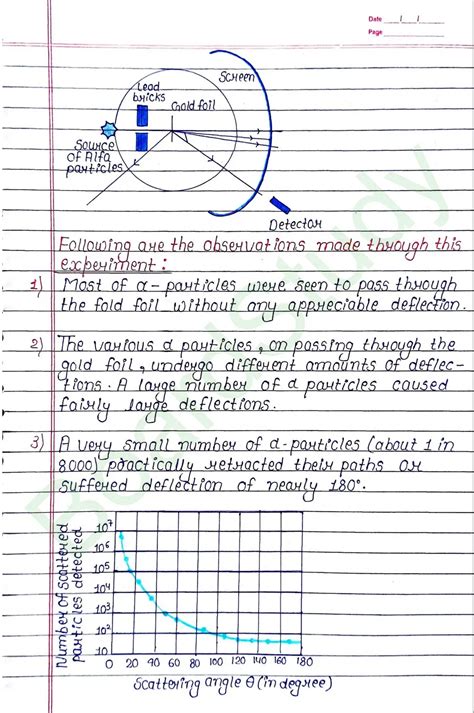 Date / /
Page
Screen
Lead
bricks
Gold foil
Source
of Alfa
particles
Detector
Following are the observations made through this
experiment :
1) Most of α- particles were seen to pass through
the fold foil without any appreciable deflection.
2) The various α particles, on passing through the
gold foil, undergo different amounts of deflec-
tions. A large number of α particles caused
fairly large deflections.
3) A very small number of α-particles (about 1 in
8000) practically retracted their paths or
suffered deflection of nearly 180°.
Number of scattered
particles detected
10⁷
10⁶
10⁵
10⁴
10³
10²
10
0 20 40 60 80 100 120 140 160 180
Scattering angle θ (in degree)